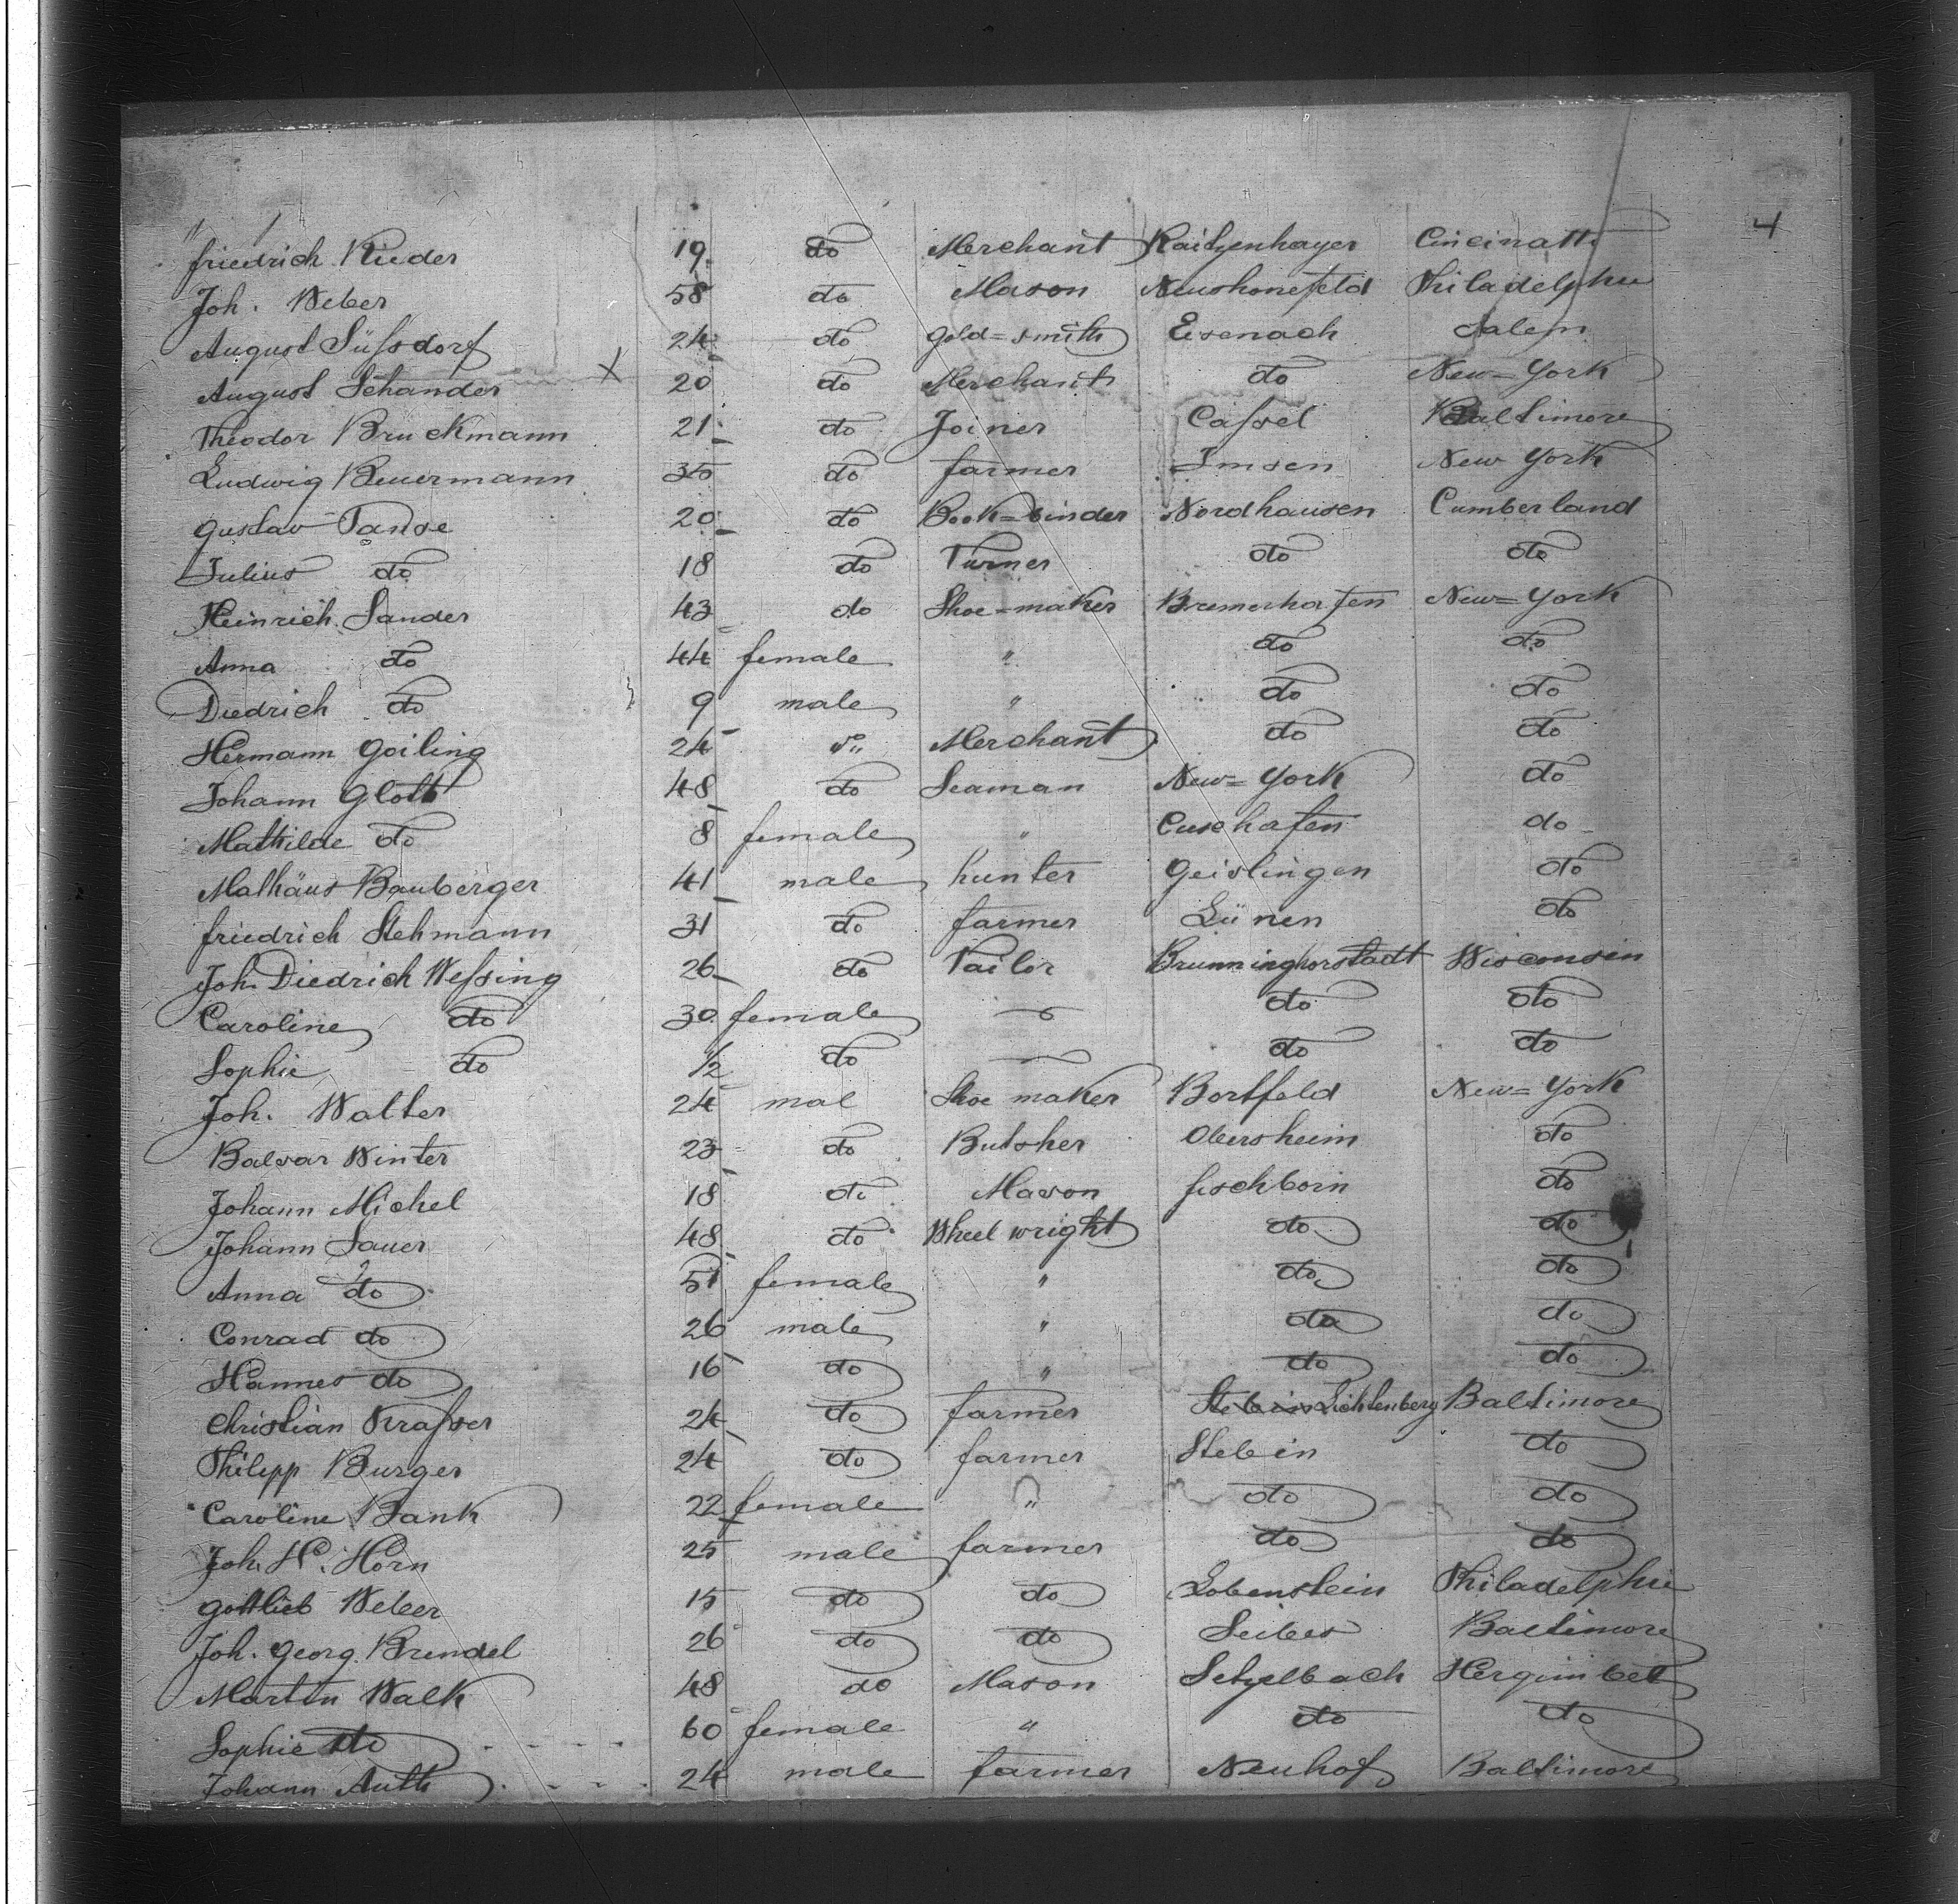 4
friedrich Rieder 19 do Merchant Raitzenhayer Cincinatti
Joh. Weber 58 do Mason Neushonefeld Philadelphia
August Süssdorf 24 do gold=smith Eisenach Salem
August Schander X 20 do Merchant do New=York
Theodor Bruckmann 21 do Joiner Cassel Baltimore
Ludwig Beuermann 35 do farmer Imsen New York
gustav Tanse 20 do Book=binder Nordhausen Cumberland
Julius do 18 do Turner do do
Heinrich Sander 43 do Shoe=maker Bremerhafen New=York
Anna do 44 female " do do
Diedrich do 9 male " do do
Hermann Goiling 24 do Merchant do do
Johann Glott 48 do Seaman New=York do
Mathilde do 8 female " Cuxhafen do
Mathäus Bauberger 41 male hunter Geislingen do
friedrich Stehmann 31 do farmer Lünen do
Joh. Diedrich Wessing 26 do Tailor Brunninghorstadt Wisconsin
Caroline do 30 female — do do
Sophie do 1/2 do — do do
Joh. Walter 24 mal Shoe maker Bortfeld New=York
Balsar Winter 23 do Butsher Obersheim do
Johann Michel 18 do Mason fischborn do
Johann Sauer 48 do Wheel wright do do
Anna do 51 female " do do
Conrad do 26 male " do do
Hannes do 16 do " do do
Christian Krasser 24 do farmer Stebin Lichtenberg Baltimore
Philipp Burger 24 do farmer Stebin do
Caroline Bank 22 female " do do
Joh. H. Horn 25 male farmer do do
gottlieb Weber 15 do do Lobenstein Philadelphie
Joh. Georg. Brendel 26 do do Seibes Baltimore
Martin Walk 48 do Mason Setzelbach Hergimbet
Sophie do 60 female " do do
Johann Auth 24 male farmer Neuhof Baltimore